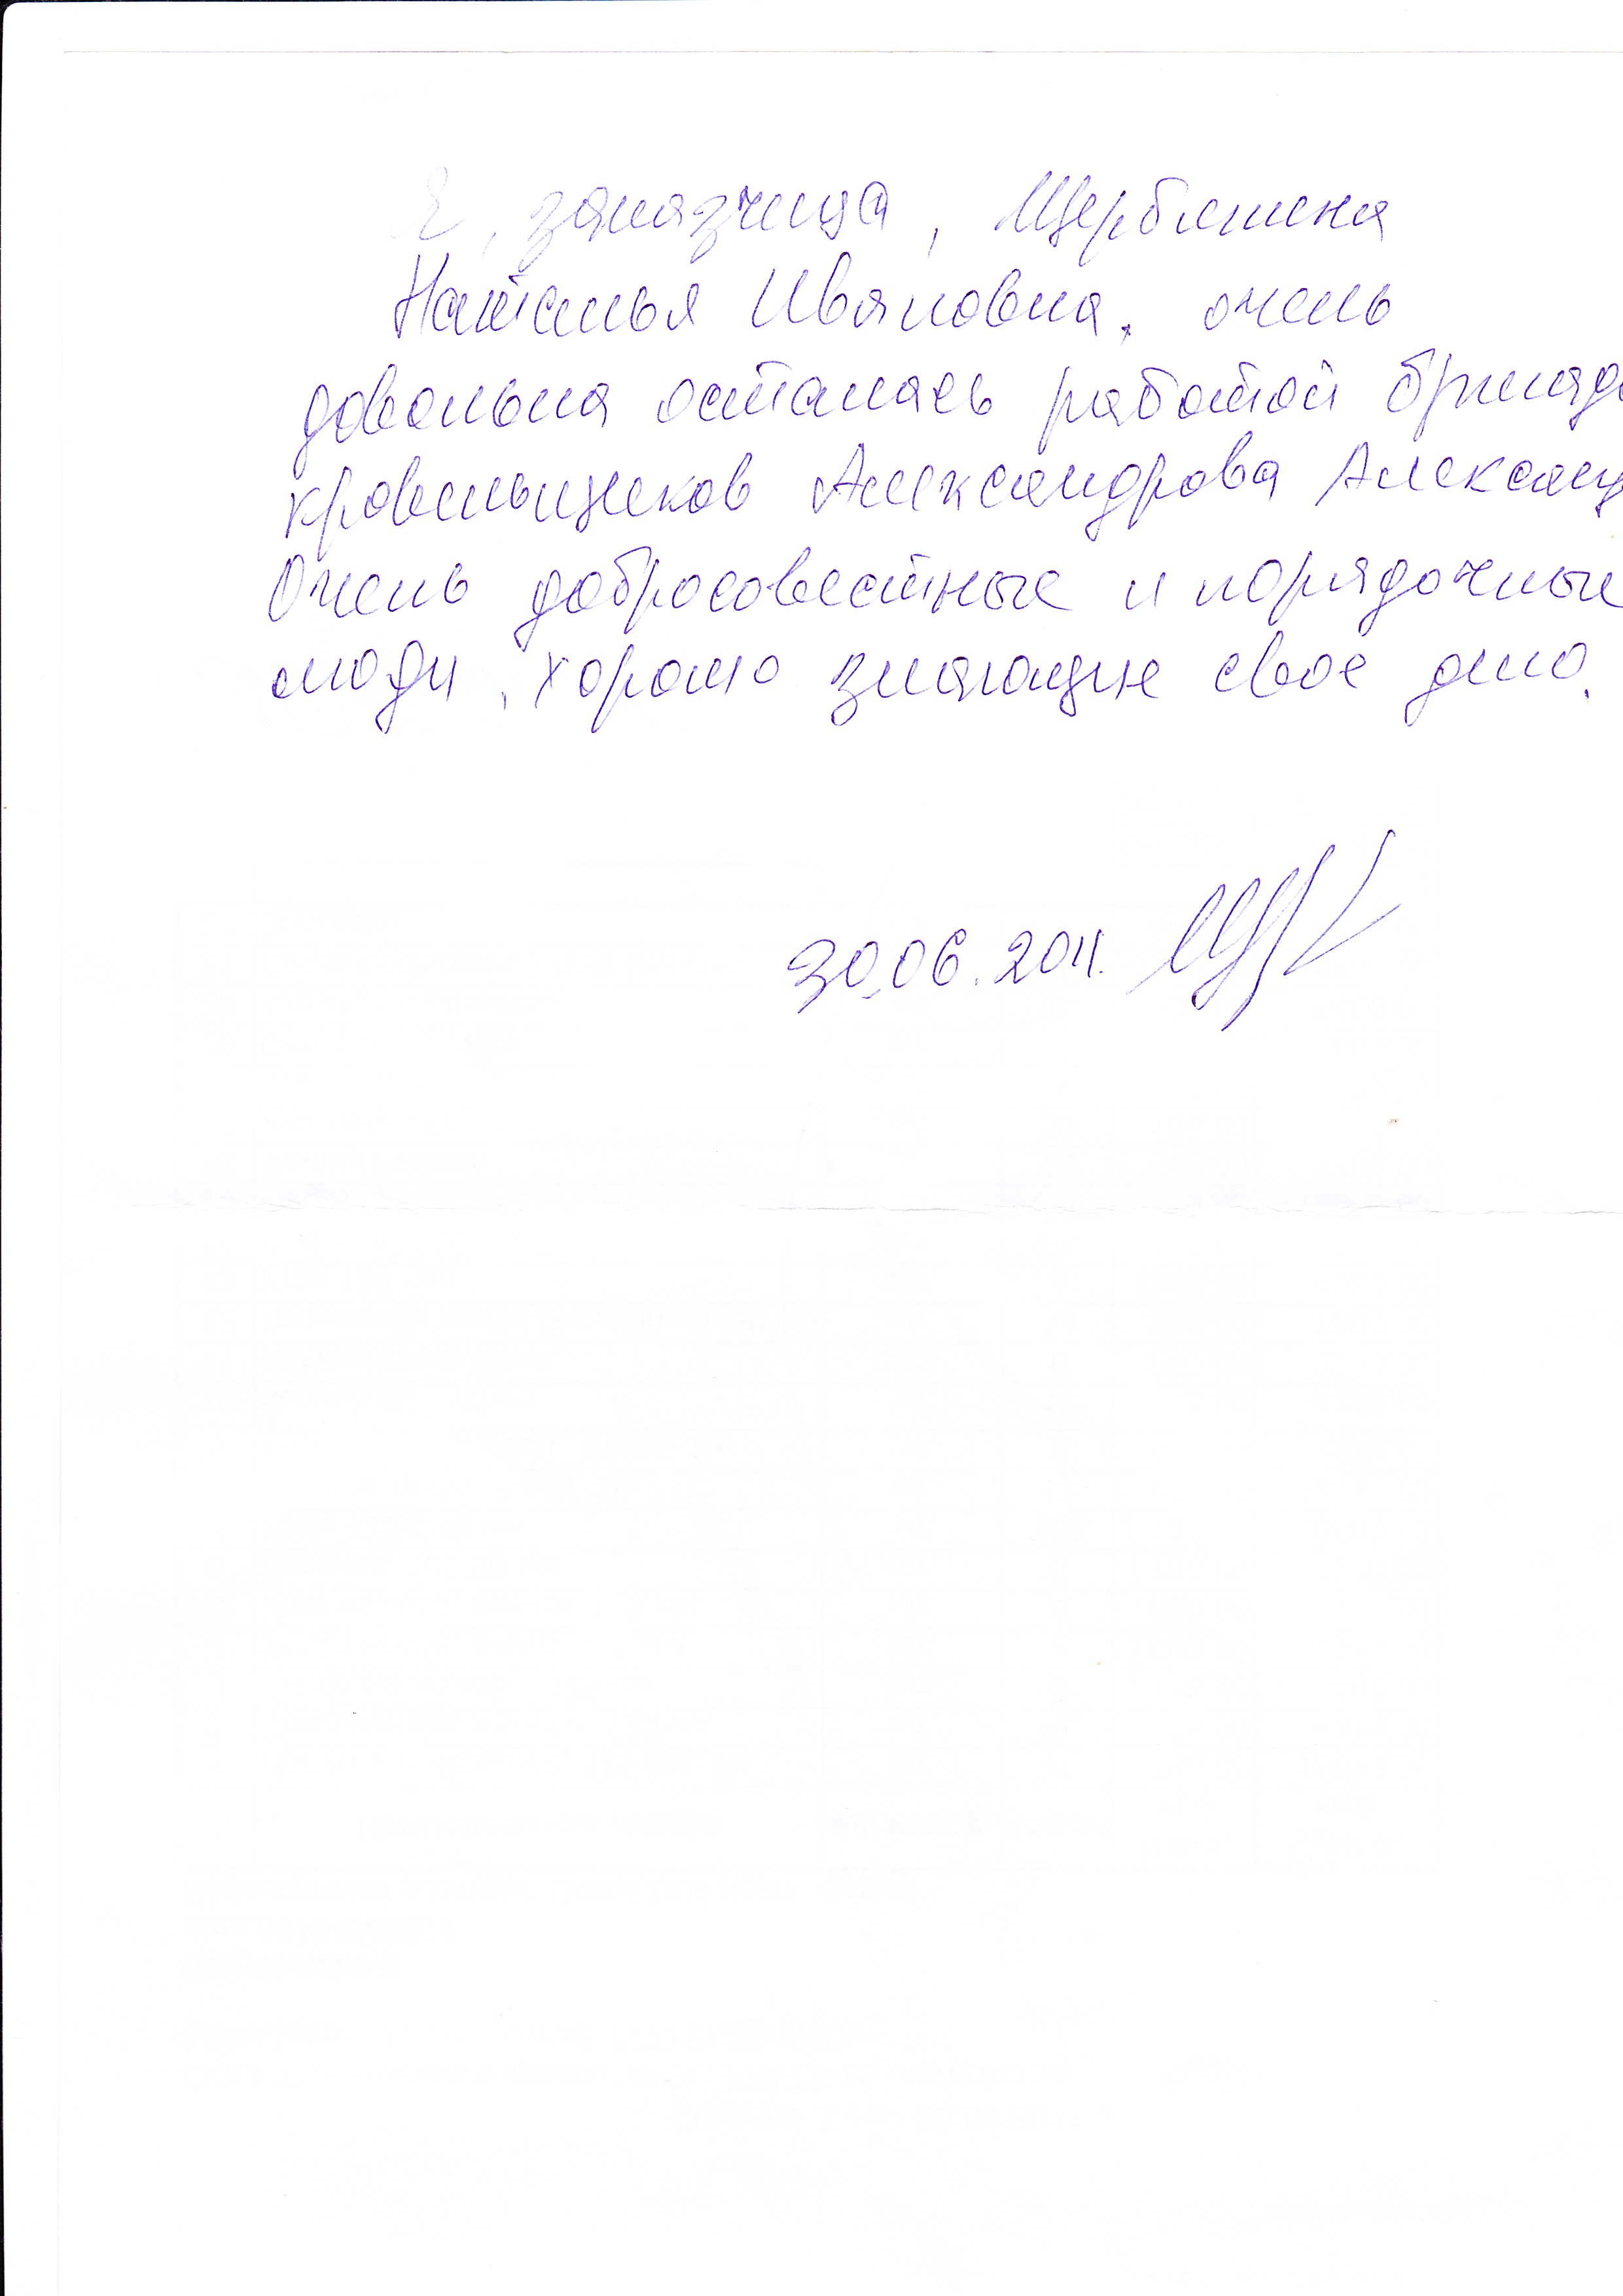 Я, заказчица,
Наталья Ивановна, очень
довольна осталась работой бригад
кровельщиков Александрова Алексан
Очень добросовестные и порядочные
люди, хорошо знающие свое дело.
30.06.2011.